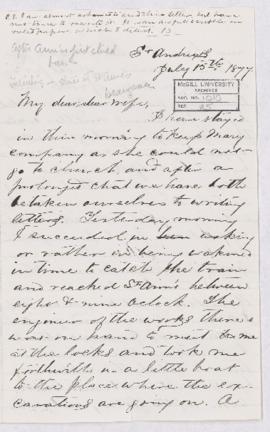 P.S. I am almost ashamed to send this letter, but have
not time to
ruled paper which I detest. D.
After Ann's first child
born
St Andrews
July 15th 1877
McGILL UNIVERSITY
ARCHIVES
ACC. NO.
REF.
My dear, dear wife,
I have stayed
in this morning to keep Mary
company as she could not
go to church, and after a
prolonged chat we have both
betaken ourselves to writing
letters. Yesterday morning
I succeeded in waking
or rather in being wakened
in time to catch the train
and reached St Ann's between
eight & nine o'clock. The
engineer of the works there
was on hand to meet me
at the locks and took me
forthwith in a little boat
to the place where the ex-
cavations are going on. A